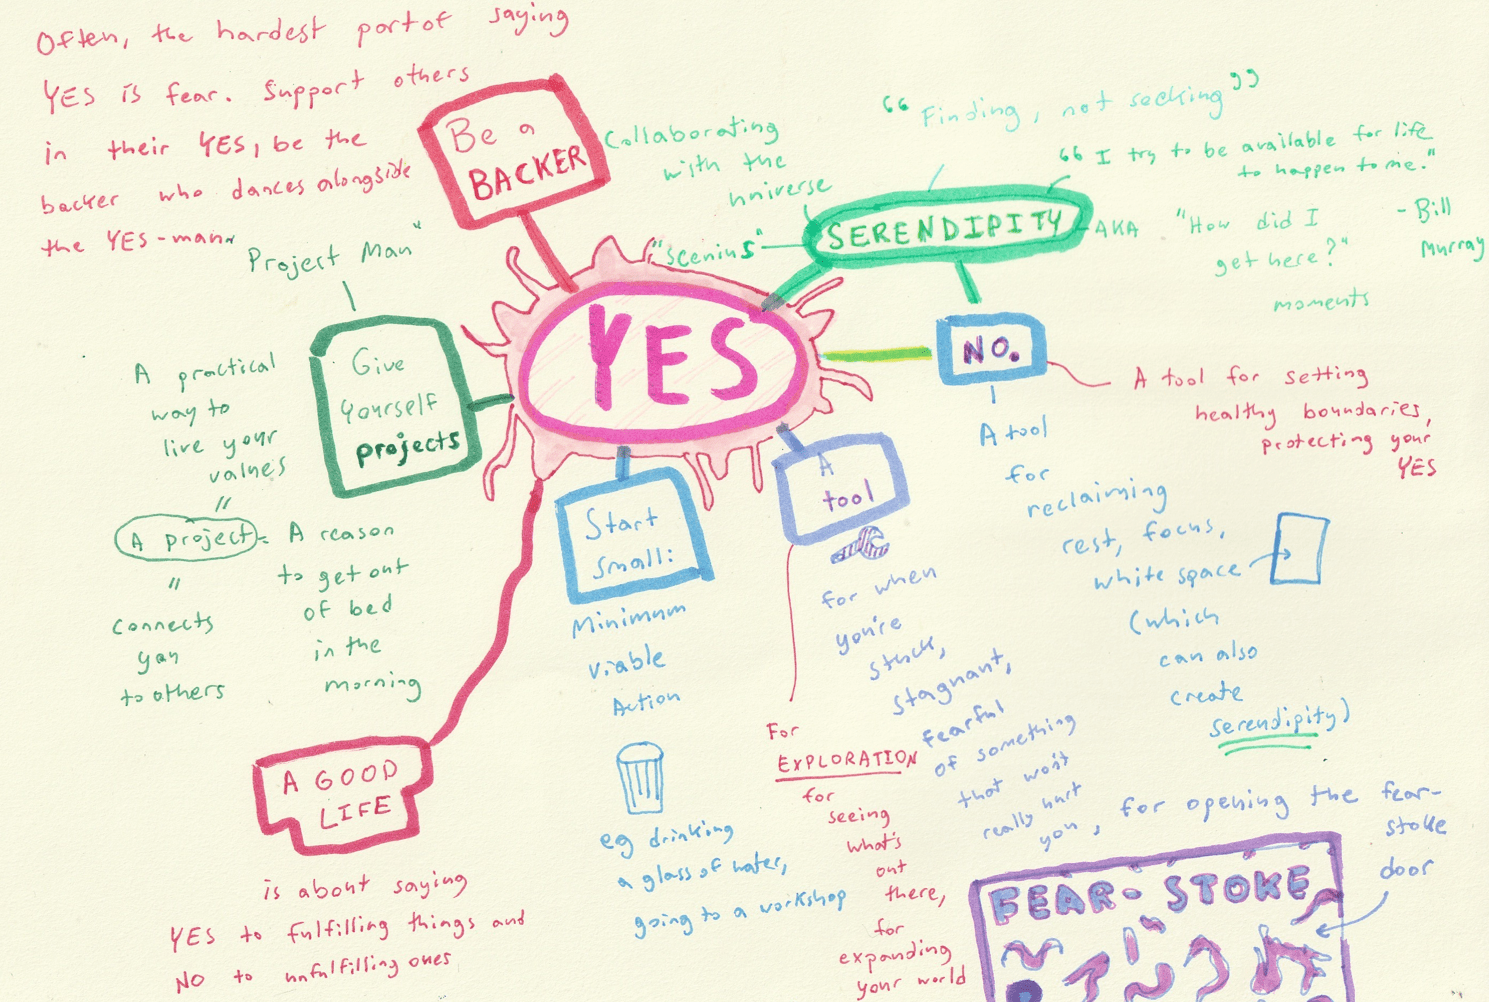 Often, the hardest part of saying
YES is fear. Support others
in their YES, be the
backer who dances alongside
the YES-man.
Be a
BACKER
Collaborating
with the
universe
"Scenius"
"Finding, not seeking"
"I try to be available for life
to happen to me."
- Bill
Murray
SERENDIPITY
AKA "How did I
get here?"
moments
Project Man"
Give
Yourself
projects
A practical
way to
live your
values
"
A project =
"
connects
you
to others
A reason
to get out
of bed
in the
morning
YES
NO.
A tool for setting
healthy boundaries,
protecting your
YES
A tool
for
reclaiming
rest, focus,
white space
(which
can also
create
serendipity)
A
tool
for when
you're
stuck,
stagnant,
fearful
of something
that won't
really hurt
you, for opening the fear-
stoke
door
For
EXPLORATION
for
seeing
what's
out
there,
for
expanding
your world
Start
small:
Minimum
Viable
Action
eg drinking
a glass of water,
going to a workshop
A GOOD
LIFE
is about saying
YES to fulfilling things and
NO to unfulfilling ones
FEAR-STOKE